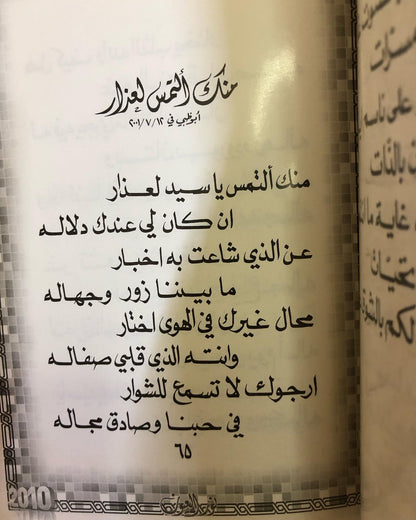 منك ألتمس لعذار
أبوظبي في ١٢/ ٧/ ٢٠٠١
منك ألتمس يا سيد لعذار
ان كان لي عندك دلاله
عن الذي شاعت به اخبار
ما بيننا زور وجهاله
محال غيرك في الهوى اختار
وانته الذي قلبي صفاله
ارجوك لا تسمع للشوار
في حبنا وصادق مجاله
٦٥
2010